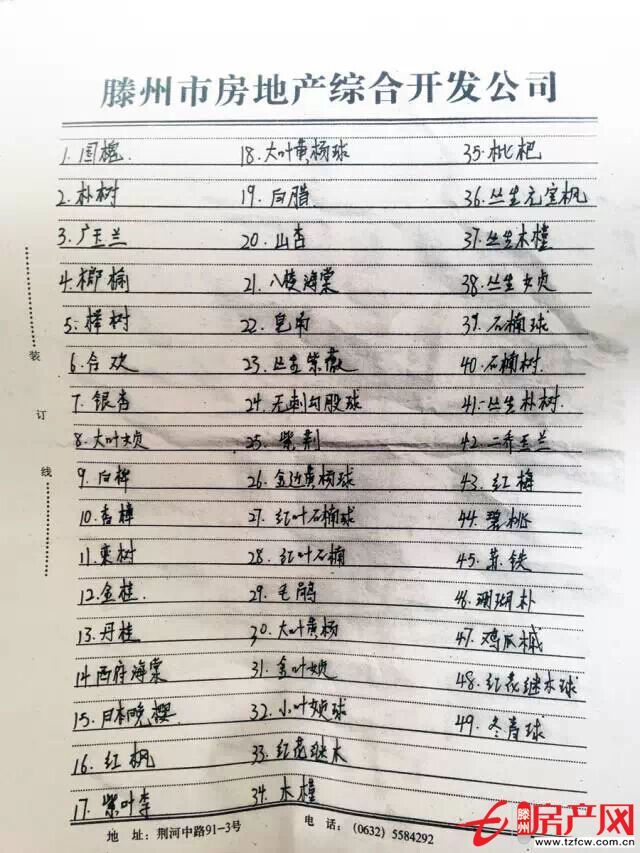 滕州市房地产综合开发公司
1. 国槐
2. 朴树
3. 广玉兰
4. 榔榆
5. 榉树
6. 合欢
7. 银杏
8. 大叶女贞
9. 白桦
10. 香樟
11. 栾树
12. 金桂
13. 丹桂
14. 西府海棠
15. 日本晚樱
16. 红枫
17. 紫叶李
18. 大叶黄杨球
19. 白腊
20. 山杏
21. 八棱海棠
22. 皂角
23. 丛生紫薇
24. 无刺勾股球
25. 紫荆
26. 金边黄杨球
27. 红叶石楠球
28. 红叶石楠
29. 毛鹃
30. 大叶黄杨
31. 金叶女贞
32. 小叶女贞球
33. 红花继木
34. 木槿
35. 枇杷
36. 丛生元宝枫
37. 丛生木槿
38. 丛生女贞
39. 石楠球
40. 石楠树
41. 丛生朴树
42. 二乔玉兰
43. 红梅
44. 碧桃
45. 苏铁
46. 珊瑚朴
47. 鸡爪槭
48. 红花继木球
49. 冬青球
装
订
线
地 址: 荆河中路91-3号 电 话: (0632) 5584292
滕州 房产网
www.tzfcw.com.cn